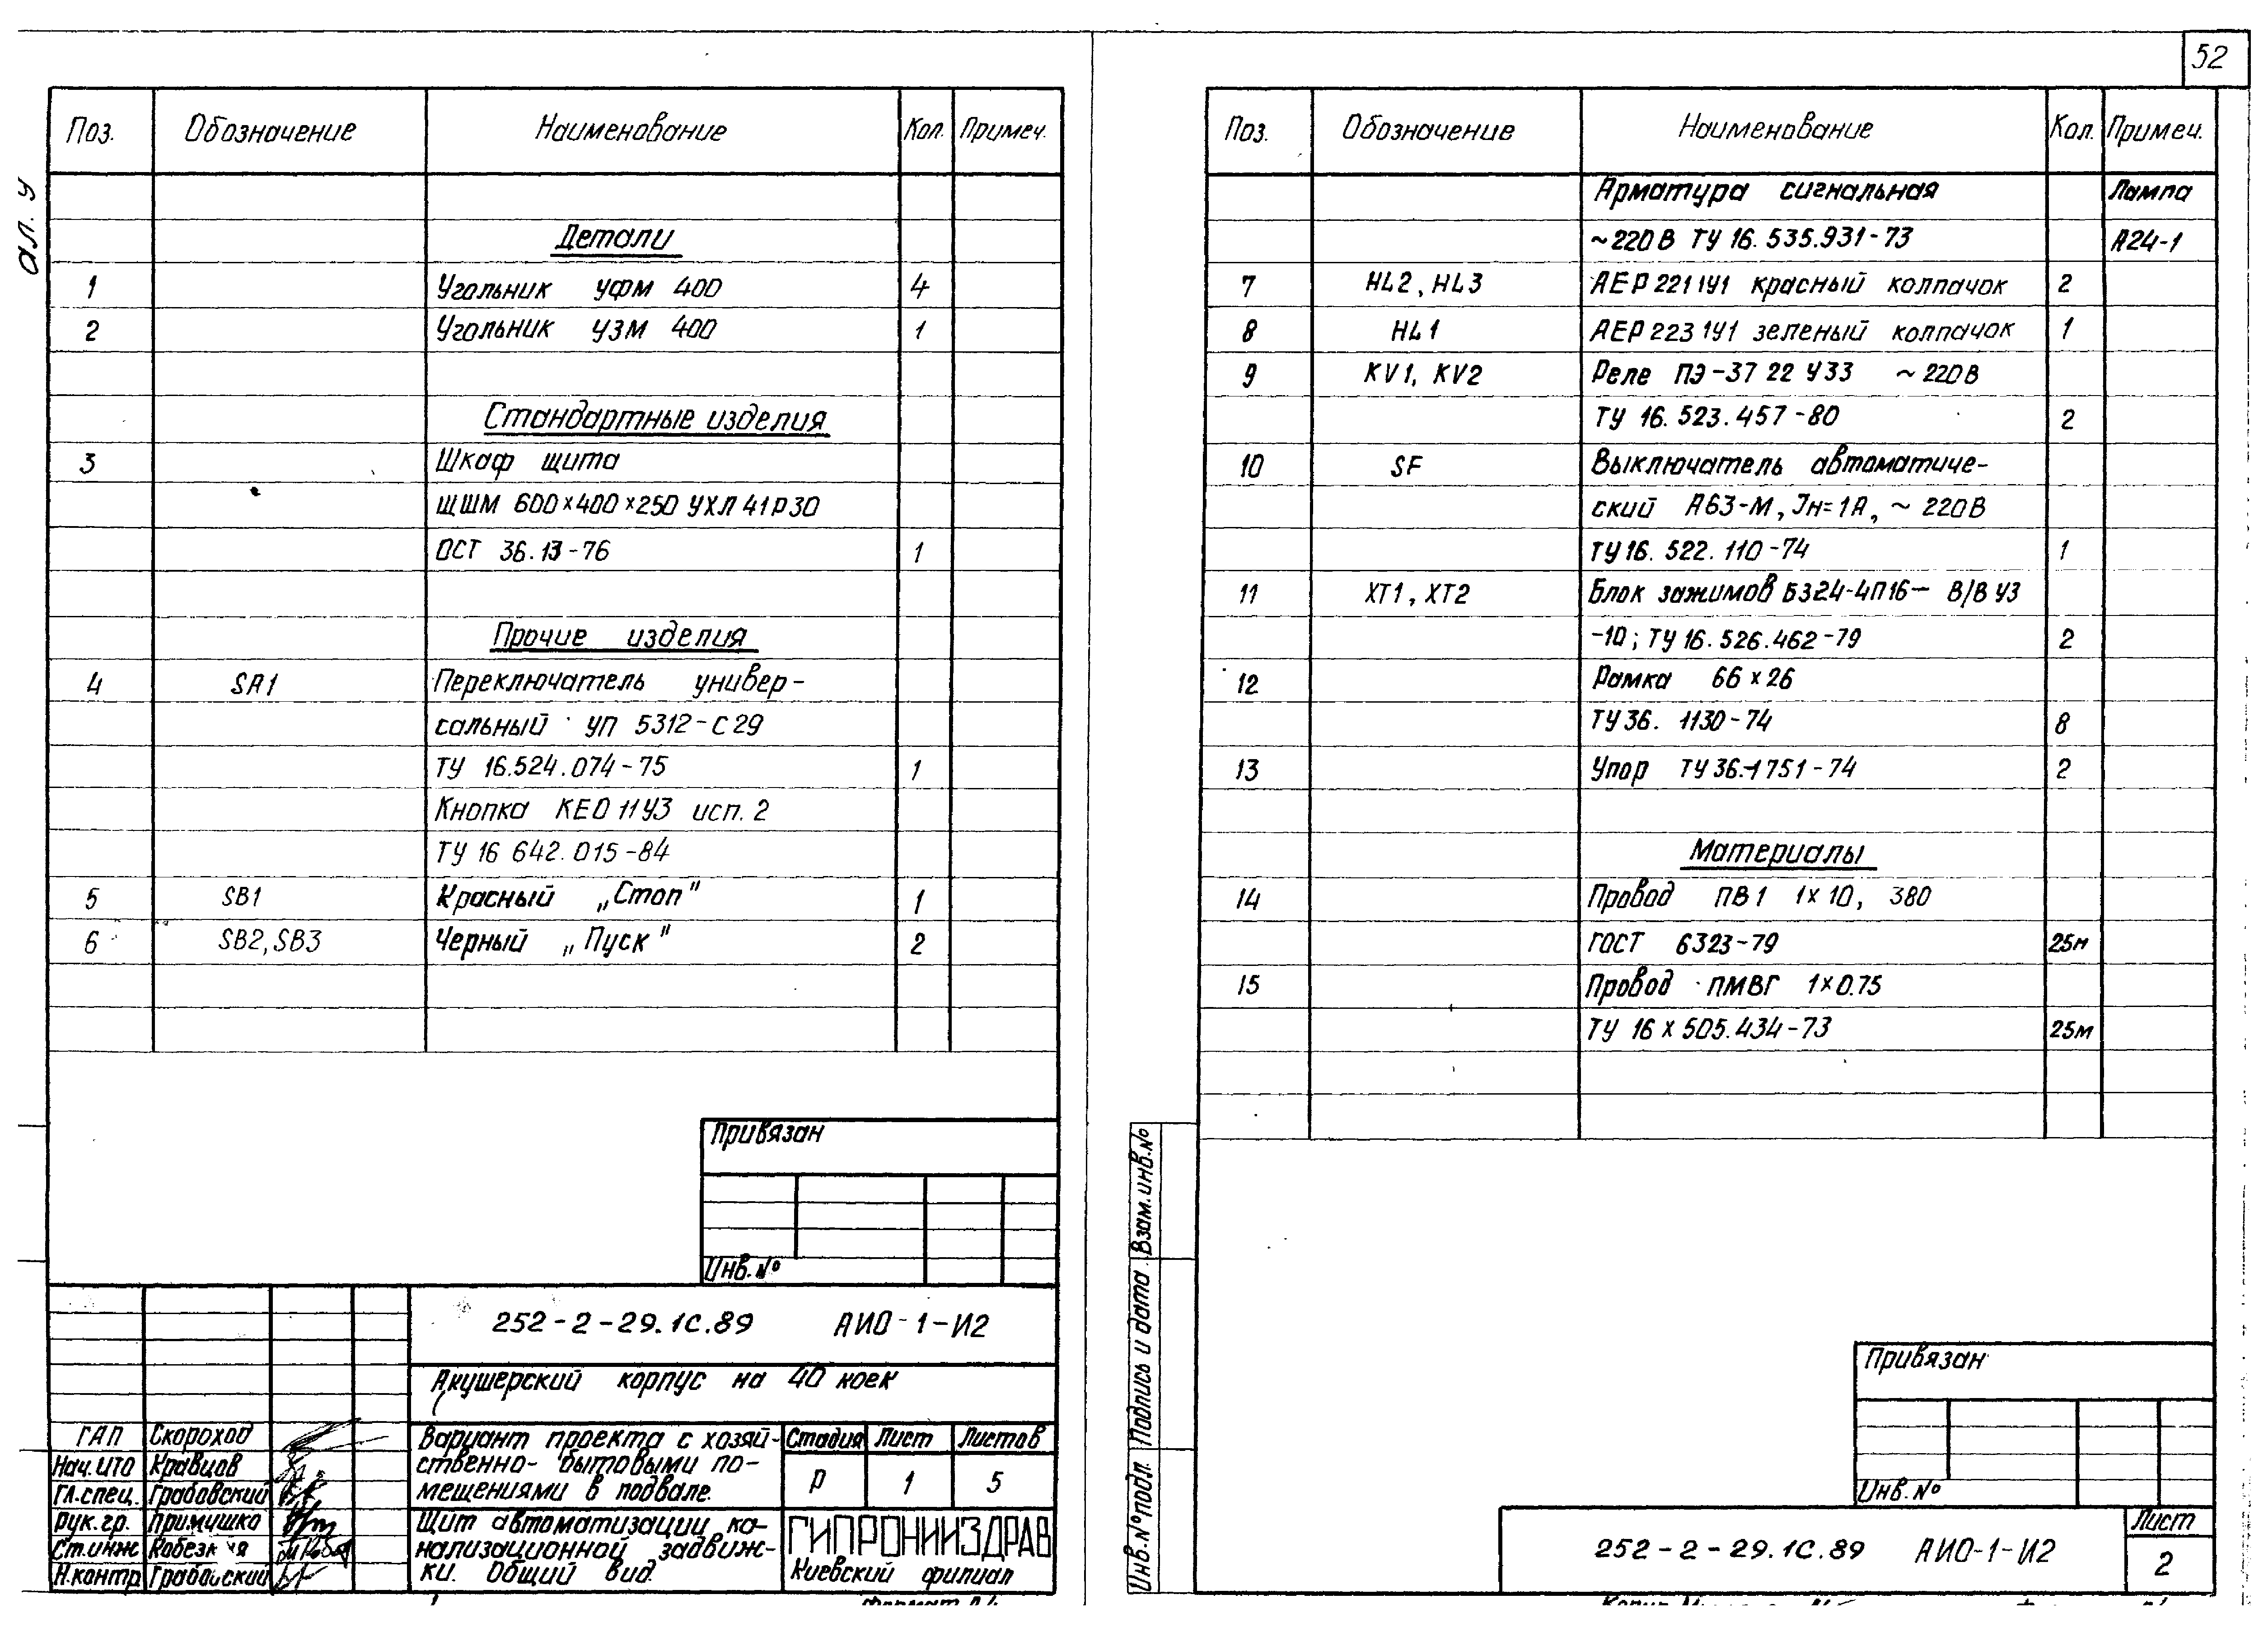 52
ал. У
Поз. Обозначение Наименование Кол. Примеч.
Детали
1 Угольник УФМ 400 4
2 Угольник УЗМ 400 1
Стандартные изделия
3 Шкаф щита
ЩШМ 600×400×250 УХЛ 41Р30
ОСТ 36.13-76 1
Прочие изделия
4 SA1 Переключатель универ-
сальный УП 5312-С29
ТУ 16.524.074-75 1
Кнопка КЕО 11У3 исп. 2
ТУ 16 642.015-84
5 SB1 Красный „Стоп" 1
6 SB2, SB3 Черный „Пуск" 2
Привязан
Инв.№
252-2-29.1С.89 АИО-1-И2
Акушерский корпус на 40 коек
ГАП Скороход
Нач.ИТО Кравцов
Гл.спец. Грабовский
Рук.гр. Примушко
Ст.инж
Н.контр Грабовский
Вариант проекта с хозяй-
ственно-бытовыми по-
мещениями в подвале.
Стадия Лист Листов
Р 1 5
Щит автоматизации ка-
нализационной задвиж-
ки. Общий вид.
ГИПРОНИИЗДРАВ
Киевский филиал
Формат А4
Поз. Обозначение Наименование Кол. Примеч.
Арматура сигнальная Лампа
~220В ТУ 16.535.931-73 А24-1
7 HL2, HL3 АЕР 221 1У1 красный колпачок 2
8 HL1 АЕР 223 1У1 зеленый колпачок 1
9 KV1, KV2 Реле ПЭ-37 22 У33 ~220В
ТУ 16.523.457-80 2
10 SF Выключатель автоматиче-
ский А63-М, Iн=1А, ~220В
ТУ 16.522.110-74 1
11 XT1, XT2 Блок зажимов БЗ24-4П16- В/В У3
-10; ТУ 16.526.462-79 2
12 Рамка 66×26
ТУ 36. 1130-74 8
13 Упор ТУ 36.-1751-74 2
Материалы
14 Провод ПВ1 1×10, 380
ГОСТ 6323-79 25м
15 Провод ПМВГ 1×0.75
ТУ 16 х 505.434-73 25м
Инв.№подл. Подпись и дата Взам.инв.№
Привязан
Инв.№
252-2-29.1С.89 АИО-1-И2
Лист
2